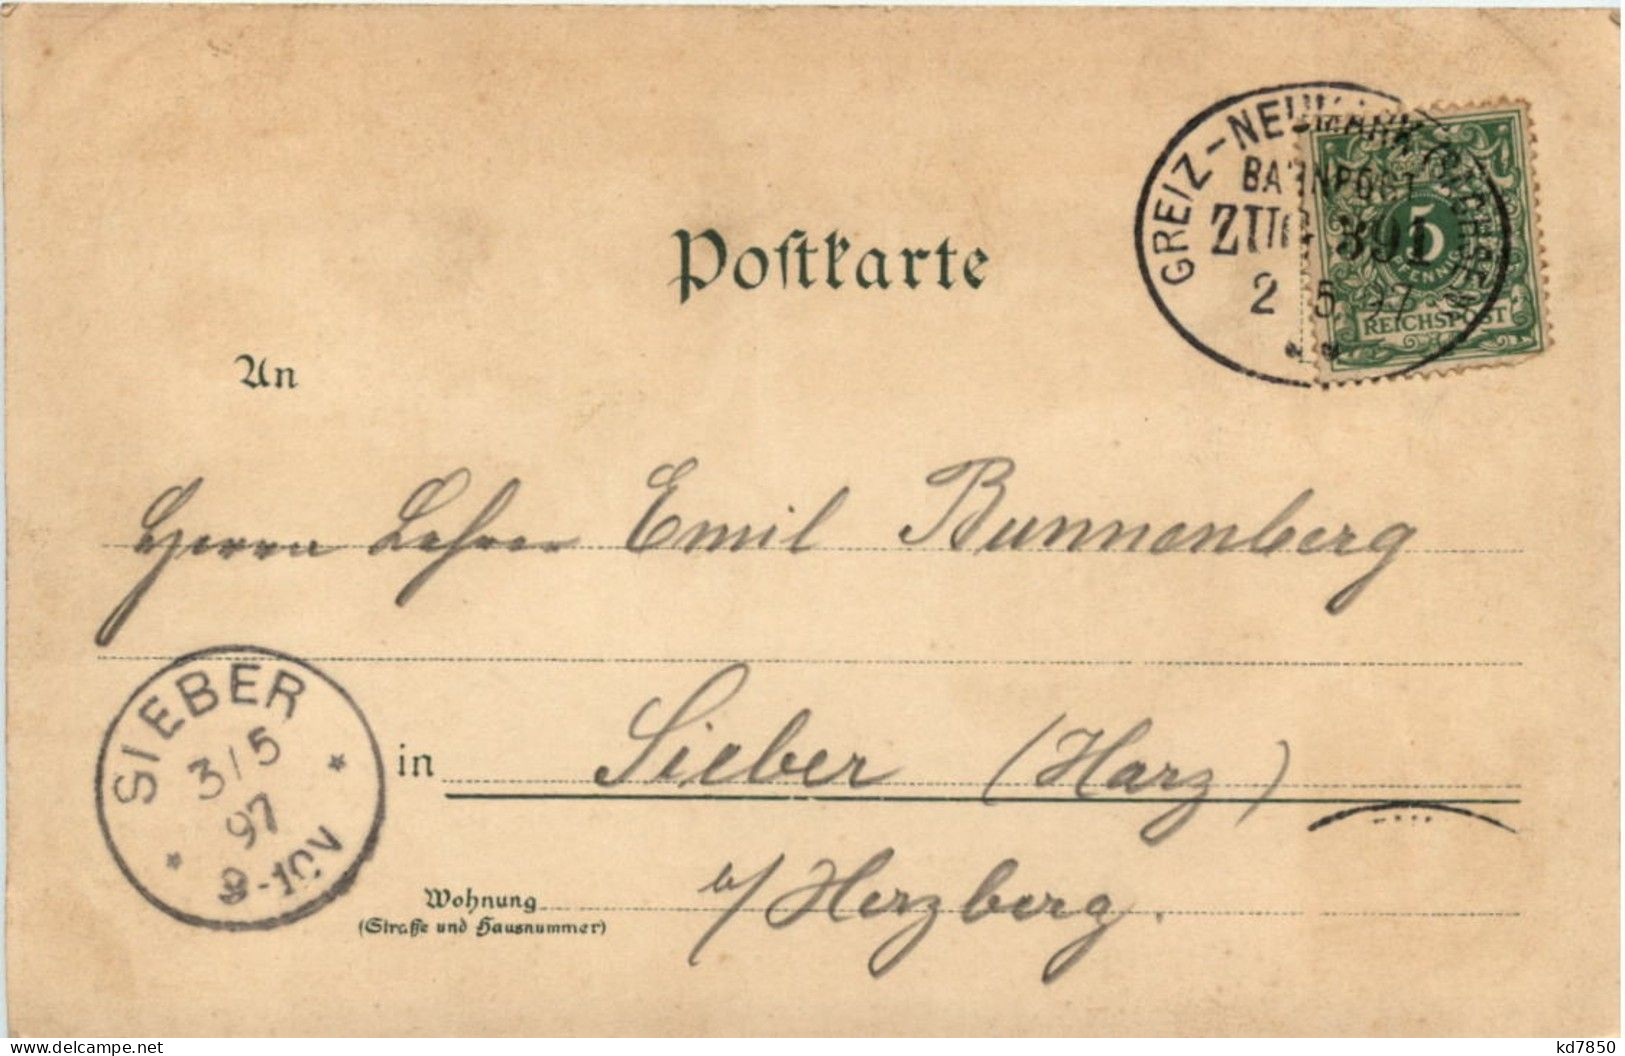 GREIZ-NEUMARK (SACHSEN)
BAHNPOST
ZUG 391
2 5. 97
5
PFENNIG
REICHSPOST
Postkarte
An
Herrn Lehrer Emil Bunnenberg
SIEBER
3/5
97
8-10V
in Sieber (Harz)
b/Herzberg.
Wohnung
(Straße und Hausnummer)
delcampe.net
kd7850